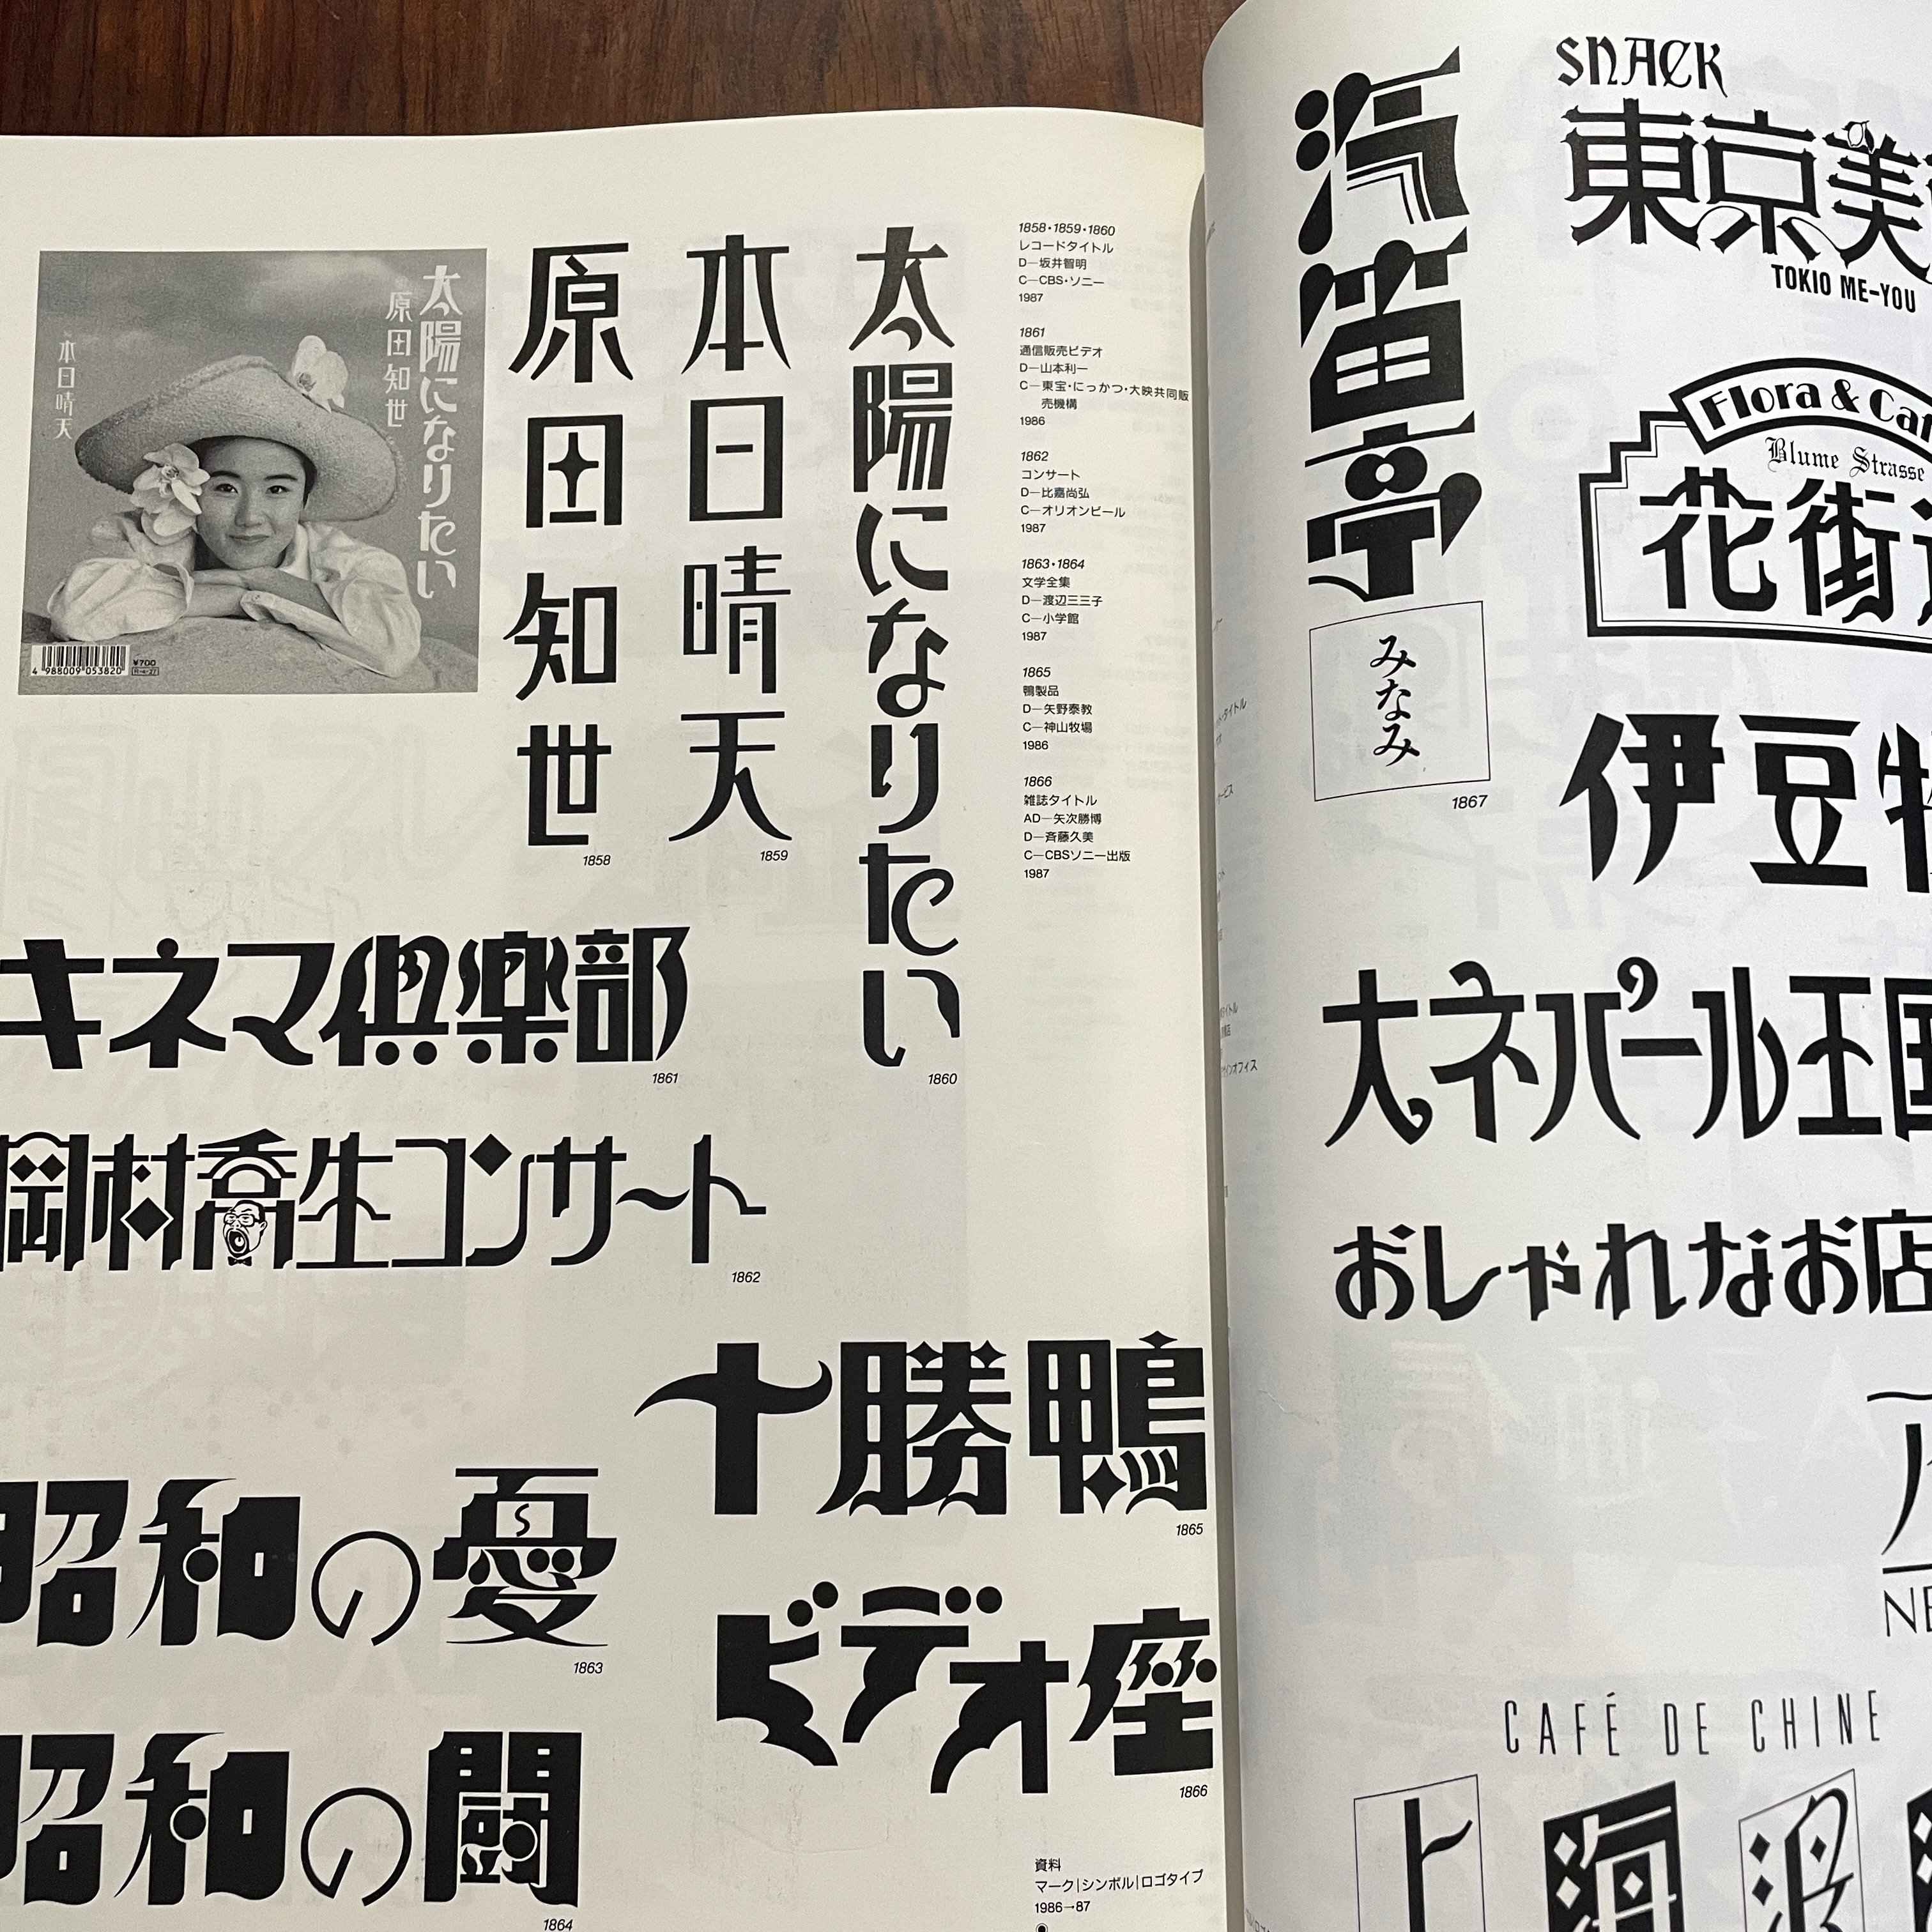 太陽になりたい
原田知世
本日晴天
4 988009 053820
¥700
原田知世
1858
本日晴天
1859
太陽になりたい
1860
キネマ倶楽部
1861
岡村喬生コンサート
1862
十勝鴨
1865
昭和の憂
1863
ビデオ座
1866
昭和の闘
1864
1858・1859・1860
レコードタイトル
D—坂井智明
C—CBS・ソニー
1987
1861
通信販売ビデオ
D—山本利一
C—東宝・にっかつ・大映共同販
売機構
1986
1862
コンサート
D—比嘉尚弘
C—オリオンビール
1987
1863・1864
文学全集
D—渡辺三三子
C—小学館
1987
1865
鴨製品
D—矢野泰教
C—神山牧場
1986
1866
雑誌タイトル
AD—矢次勝博
D—斉藤久美
C—CBSソニー出版
1987
資料
マーク|シンボル|ロゴタイプ
1986→87
汽笛亭
みなみ
1867
SNACK
東京美
TOKIO ME-YOU
Flora & Car
Blume Strasse
花街
伊豆
大ネパール王国
おしゃれなお店
NE
CAFÉ DE CHINE
上海